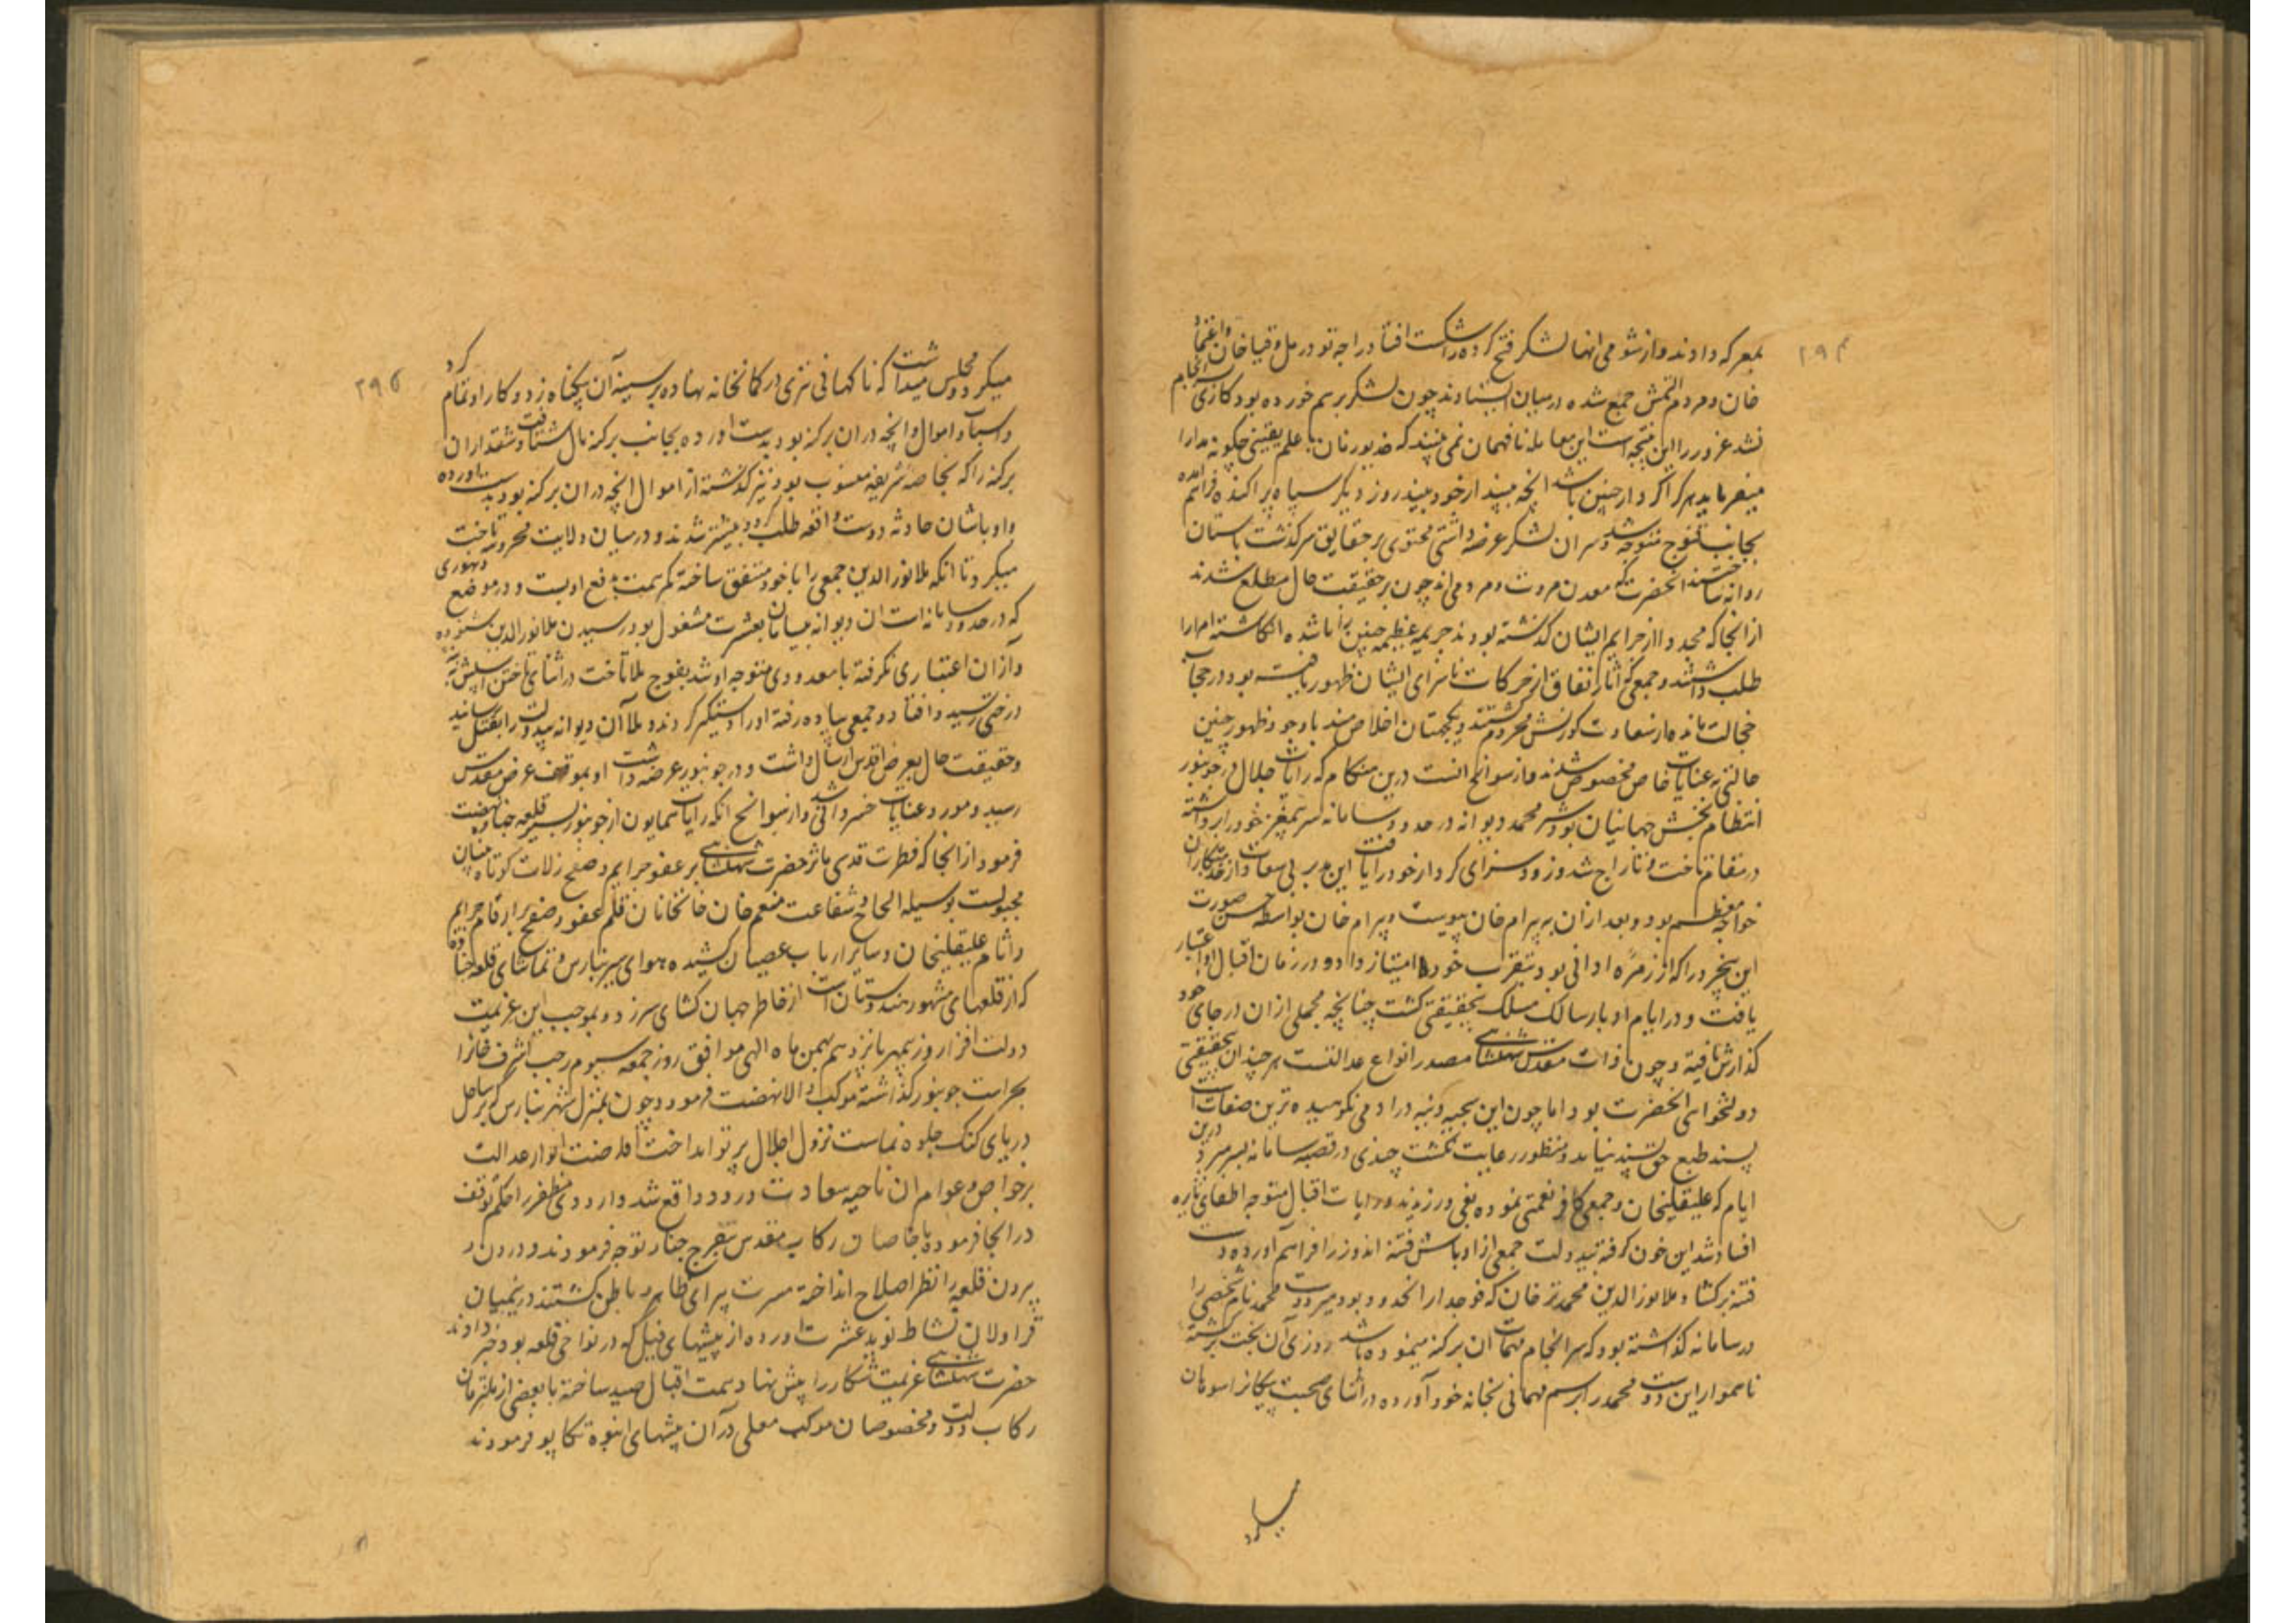 ۲۹۴
بمعرکه دادند و از شومی انها لشکر فتح کرده را شکست افتاد راجه تودرمل و قیاخان
خان و مردم التمش جمع شده درمیان ایستادند چون لشکر برهم خورده بود کاری
نشد غرور را این نتیجه است این معامله نافهمان نمی بینند که بعلم یقینی چکونه مدارا
میفرماید هرکرا کردار چنین باشد انچه بیند از خود بیند روز دیگر سپاه پراکنده فراهم
بجانب قنوج متوجه شد و سران لشکر عرضه داشتی محتوی بر حقایق سرکذشت باستان
روانه ساختند انحضرت که معدن مروت و مردمی اند چون بر حقیقت حال مطلع شدند
از انجا که مجددا از جرایم ایشان کذشته بودند جریمه عظیمه چنین را ناشده انکاشته امرا را
طلب داشتند و جمعی که اثار نفاق از حرکات ناسزای ایشان ظهور یافته بود در حجاب
خجالت مانده از سعادت کورنش محروم کشتند و یکجهتان اخلاص مند باوجود ظهور چنین
حالتی به عنایات خاص مخصوص شدند و از سوانح انست درین هنکام که رایات جلال در جونپور
انتظام بخش جهانیان بود شیرمحمد دیوانه در حدود سامانه سر بیمغز خود را برداشته
در مقام تاخت و تاراج شد و زود سزای کردار خود را یافت این مدبر بی سعادت از خدمتکاران
خواجه معظم بود و بعد ازان به بیرام خان پیوست و بیرام خان بواسطه حسن صورت
این بیخرد را که از زمره ادانی بود بتقرب خود امتیاز داد و در زمان اقبال او اعتبار
یافت و در ایام ادبار سالک مسلک بیحقیقتی کشت چنانچه مجملی ازان در جای خود
کذارش یافته و چون ذات مقدس شهنشاهی مصدر انواع عدالتست هرچند ان بیحقیقتی
دولتخواهی انحضرت بود اما چون این سجیه دنیه در ادمی نکوهیده ترین صفات است
پسند طبع حق پسند نیامد و منظور رعایت نکشت چندی در قصبه سامانه بسر میبرد درین
ایام که علیقلیخان و جمعی کافر نعمتی نموده بغی ورزیدند و رایات اقبال متوجه اطفای نایره
افساد شد این خون گرفته بیدولت جمعی از اوباش فتنه اندوز را فراهم آورده دست
فتنه برکشاد ملا نورالدین محمد ترخان که فوجدار انحدود بود میر دوست محمد نام شخصی را
در سامانه کذاشته بود که سرانجام مهمات ان برکنه مینموده باشد روزی آن بخت برکشته
ناهموار این دوست محمد را برسم مهمانی بخانه خود آورده در اثنای صحبت
میکرد

۲۹۵
میکرد و مجلس میداشت که ناکهانی تیری در کمانخانه نهاده بر سینه آن بیکناه زد و کار او تمام کرد
و اسباب و اموال و انچه دران برکنه بود بدست اورده بجانب برکنه مال شتافت و شقداران
برکنه را که بخاصه شریفه منسوب بود نیز کذشته از اموال انچه دران برکنه بود بدست آورده
و اوباشان حادثه دوست واقعه طلب کردا و بیشتر شدند و درمیان ولایت محروسه تاخت
میکرد تا انکه ملا نورالدین جمعی را باخود متفق ساخته کمر همت بدفع او بست و در موضع دهنوری
که در حدود سامانه است ان دیوانه بیسامان بعشرت مشغول بود رسیدن ملا نورالدین شنوده
و آزان اعتباری نکرفته با معدودی متوجه او شد بفوج ملا تاخت در اثنای تاختن اسپش به
درختی رسید و افتاد و جمعی پیاده رفته اورا دستکیر کردند و ملا آن دیوانه بیدولت را بقتل رسانید
و حقیقت حال بعرض اقدس ارسال داشت و در جونپور عرضه داشت او بموقف عرض مقدس
رسید و مورد عنایات خسروانی شد و از سوانح انکه رایات همایون از جونپور بسیر قلعه چناده نهضت
فرمود از انجا که فطرت قدسی ماثر حضرت شهنشاهی بر عفو جرایم و صفح زلات کوتاه بینان
مجبولست بوسیله الحاح و شفاعت منعم خان خانخانان قلم عفو و صفح بر ارقام جرایم
و اثام علیقلیخان و سایر ارباب عصیان کشیده هوای سیر بنارس و تماشای قلعه چناده
که از قلعهای مشهور هندوستان است از خاطر جهان کشای سرزد و بموجب این عزیمت
دولت افزا روز بمهر پانزدهم بهمن ماه الهی موافق روز جمعه سیوم رجب اشرف خانرا
بحراست جونپور کذاشته موکب والا نهضت فرمود و چون بمنزل شهر بنارس که بر ساحل
دریای کنک جلوه نماست نزول اجلال پرتو انداخت افاضت انوار عدالت
بر خواص و عوام ان ناحیه سعادت ورود واقع شد و اردوی مظفر را حکم توقف
در انجا فرموده باخاصان رکاب مقدس بتفرج چناد توجه فرمودند و درون و
برون قلعه را نظر اصلاح انداخته مسرت پیرای ظاهر و باطن کشتند درینمیان
قراولان نشاط نوید عشرت اورده از بیشهای فیل که در نواحی قلعه بود خبر دادند
حضرت شهنشاهی عزیمت شکار را پیش نهاد همت اقبال صید ساخته با بعضی از ملتزمان
رکاب دولت و مخصوصان موکب معلی درآن بیشهای انبوه تکاپو فرمودند